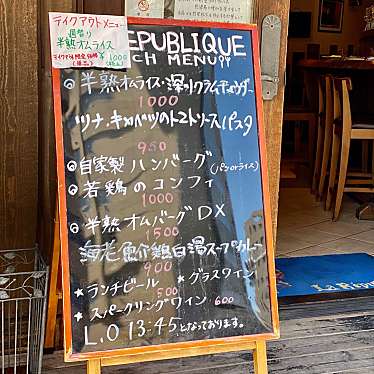 テイクアウトメニュー
週替り
半熟オムライス
¥1000
REPUBLIQUE
CH MENU
◎半熟オムライス・深川クラムチャウダー
1000
ツナ、キャベツのトマトソースパスタ
950
◎自家製ハンバーグ(パンorライス)
◎若鶏のコンフィ
1000
◎半熟オムバーグDX
1500
海老魚介鶏白湯スープカレー
900
★ランチビール ★グラスワイン
500
★スパークリングワイン 600
L.O 13:45となっております。